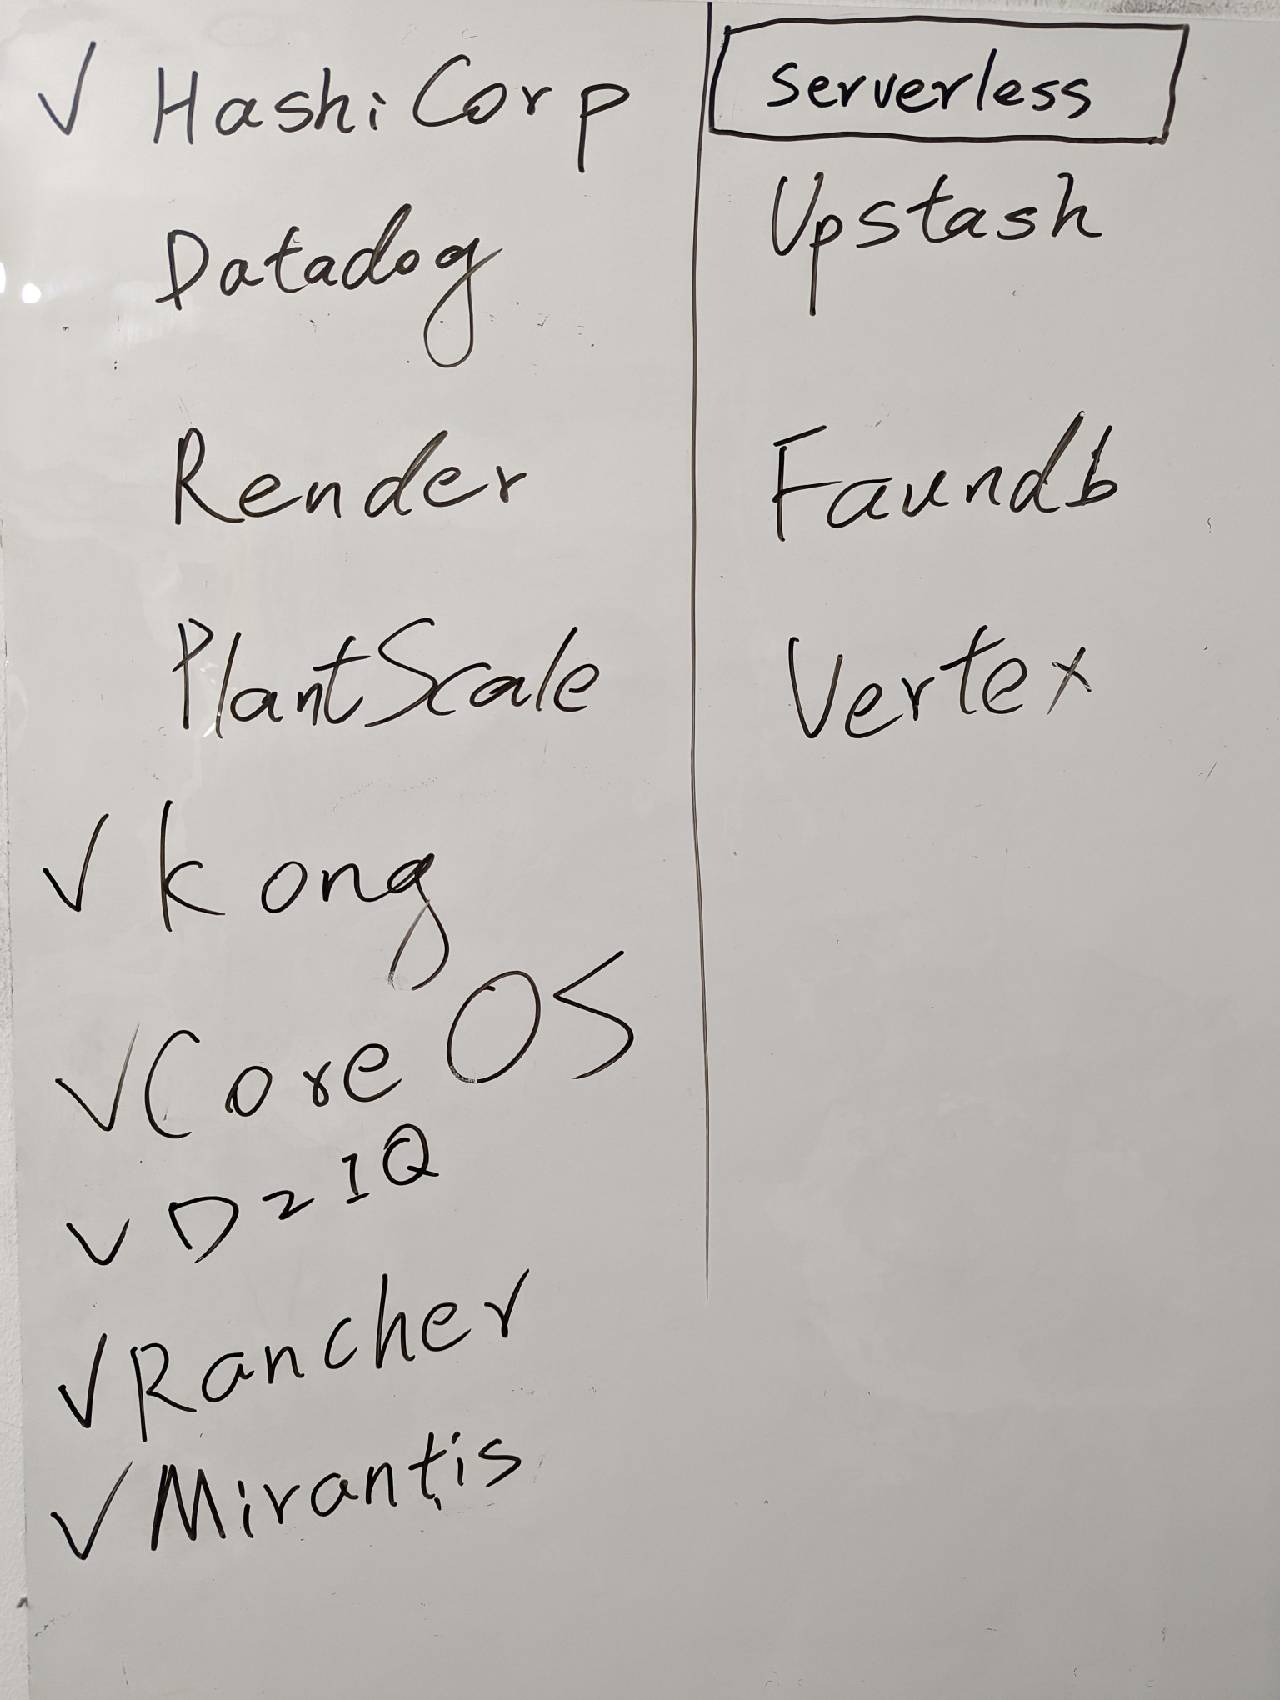 ✓ HashiCorp
Datadog
Render
PlantScale
✓ Kong
✓ Core OS
✓ D2IQ
✓ Rancher
✓ Mirantis
Serverless
Upstash
Faundb
Vertex